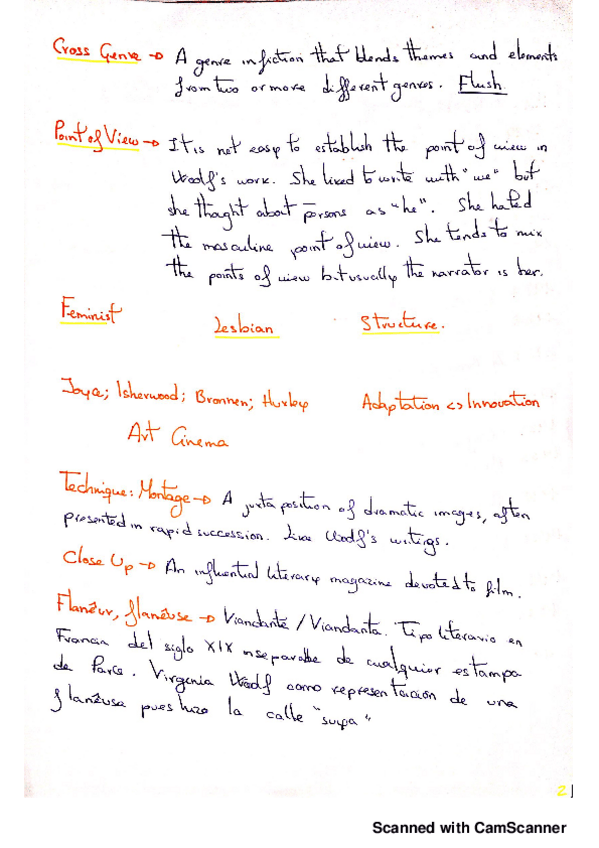 Cross Genre → A genre in fiction that blends themes and elements
from two or more different genres. Flush.
Point of View → It is not easy to establish the point of view in
Woolf's work. She liked to write with "we" but
she thought about persons as "he". She hated
the masculine point of view. She tends to mix
the points of view but usually the narrator is her.
Feminist Lesbian Structure.
Joyce; Isherwood; Bronnen; Huxley Adaptation <> Innovation
Art Cinema
Technique: Montage → A juxtaposition of dramatic images, often
presented in rapid succession. Like Woolf's writings.
Close Up → An influential literary magazine devoted to film.
Flanêur, flanêuse → Viandante / Viandanta. Tipo literario en
Francia del siglo XIX inseparable de cualquier estampa
de París. Virginia Woolf como representación de una
flanêusa pues hizo la calle "suya"
2
Scanned with CamScanner